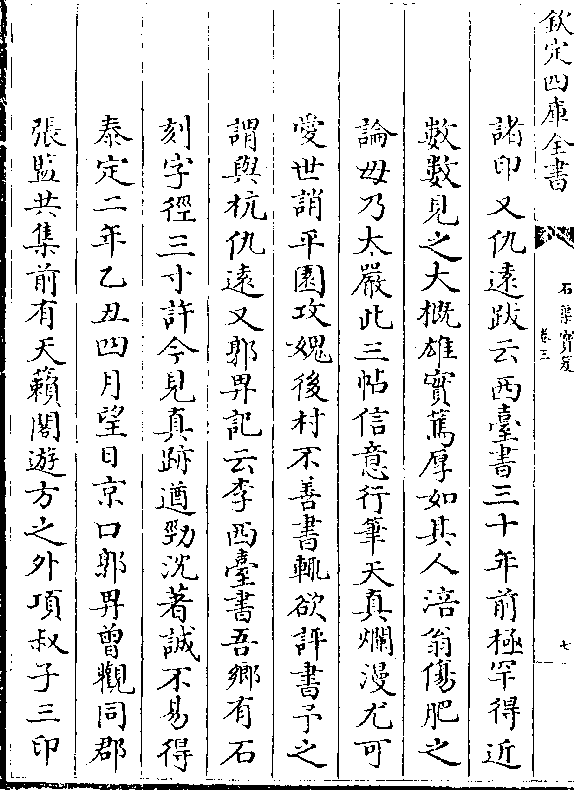 欽定四庫全書
石渠寳笈
卷三
七
諸印又仇遠跋云西臺書三十年前極罕得近
數數見之大概雄實篤厚如其人涪翁傷肥之
論毋乃太嚴此三帖信意行筆天真爛漫尤可
愛世誚平園攻媿後村不善書輒欲評書予之
謂與杭仇遠又郭畀記云李西臺書吾鄉有石
刻字徑三寸許今見真跡遒勁沈著誠不易得
泰定二年乙丑四月望日京口郭畀曽觀同郡
張監共集前有天籟閣遊方之外項叔子三印